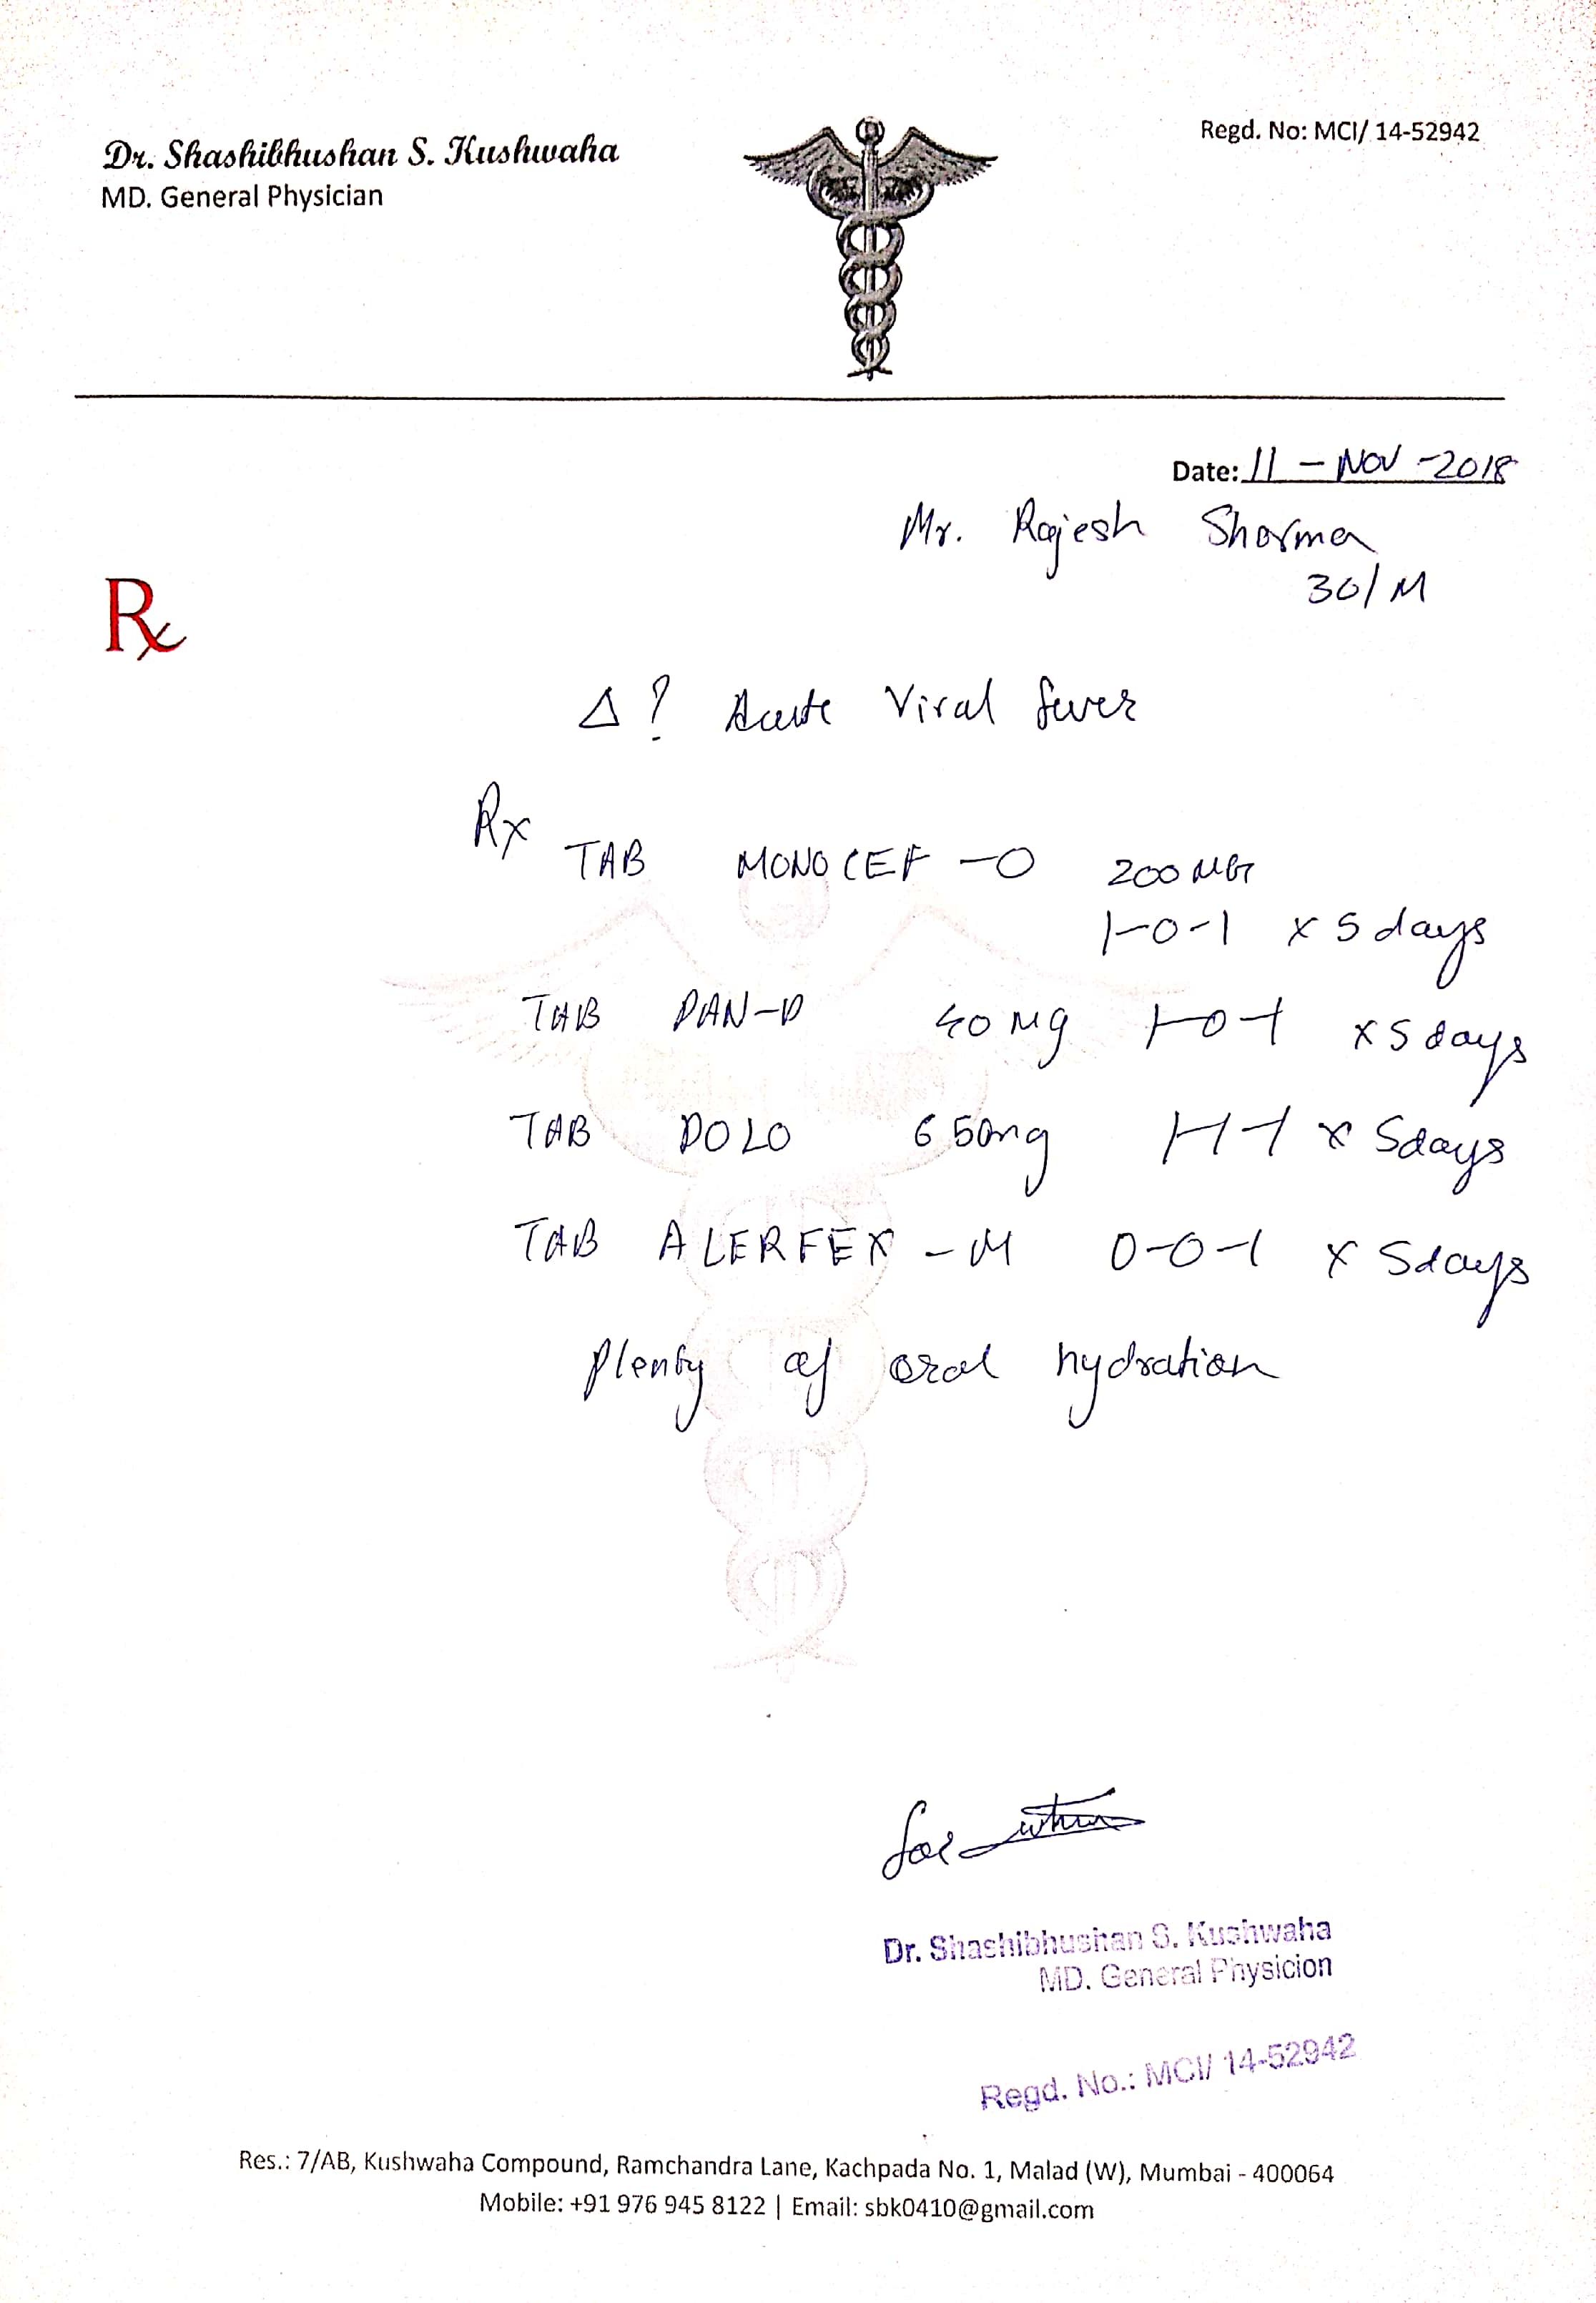 Dr. Shashibhushan S. Kushwaha
MD. General Physician
Regd. No: MCI/ 14-52942
Date: 11 - NOV - 2018
Mr. Rajesh Sharma
30/M
Rx
Δ ? Acute Viral fever
Rx
TAB MONOCEF -O 200 MG
1-0-1 x 5 days
TAB PAN-D 40 mg 1-0-1 x 5 days
TAB DOLO 650mg 1-1-1 x 5days
TAB ALERFEX - M 0-0-1 x 5days
Plenty of oral hydration
Dr. Shashibhushan S. Kushwaha
MD. General Physicion
Regd. No.: MCI/ 14-52942
Res.: 7/AB, Kushwaha Compound, Ramchandra Lane, Kachpada No. 1, Malad (W), Mumbai - 400064
Mobile: +91 976 945 8122 | Email: sbk0410@gmail.com